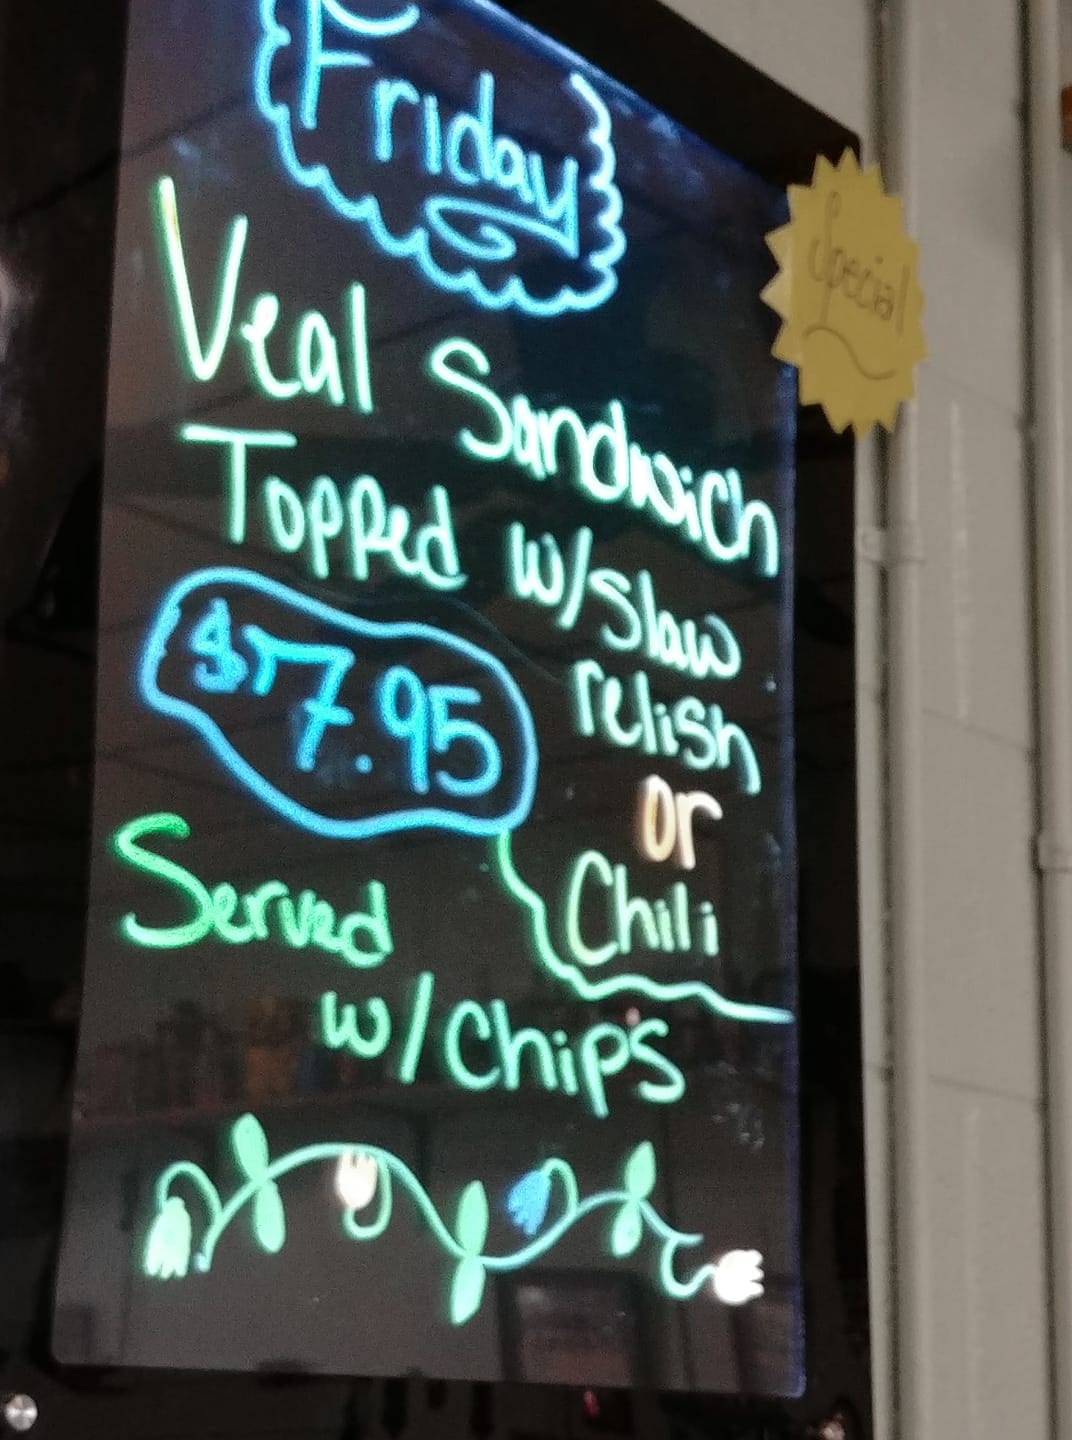 Friday
Special
Veal Sandwich
Topped w/Slaw
relish
or
Chili
$7.95
Served
w/Chips